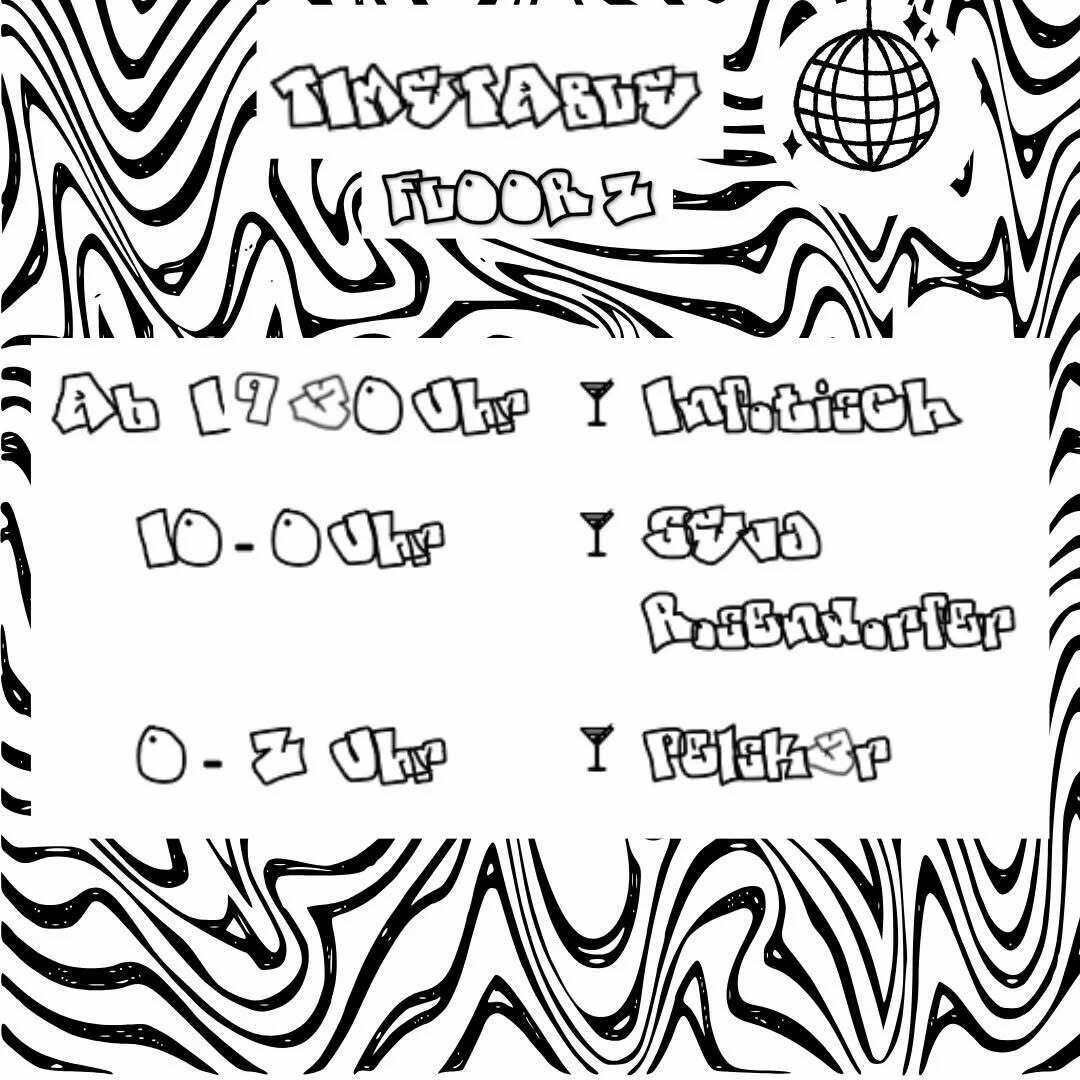 TIMETABLE
FLOOR 2
Ab 1930 Uhr Infotisch
10 - 0 Uhr
Rosendorfer
0 - 2 Uhr Pelsk3r